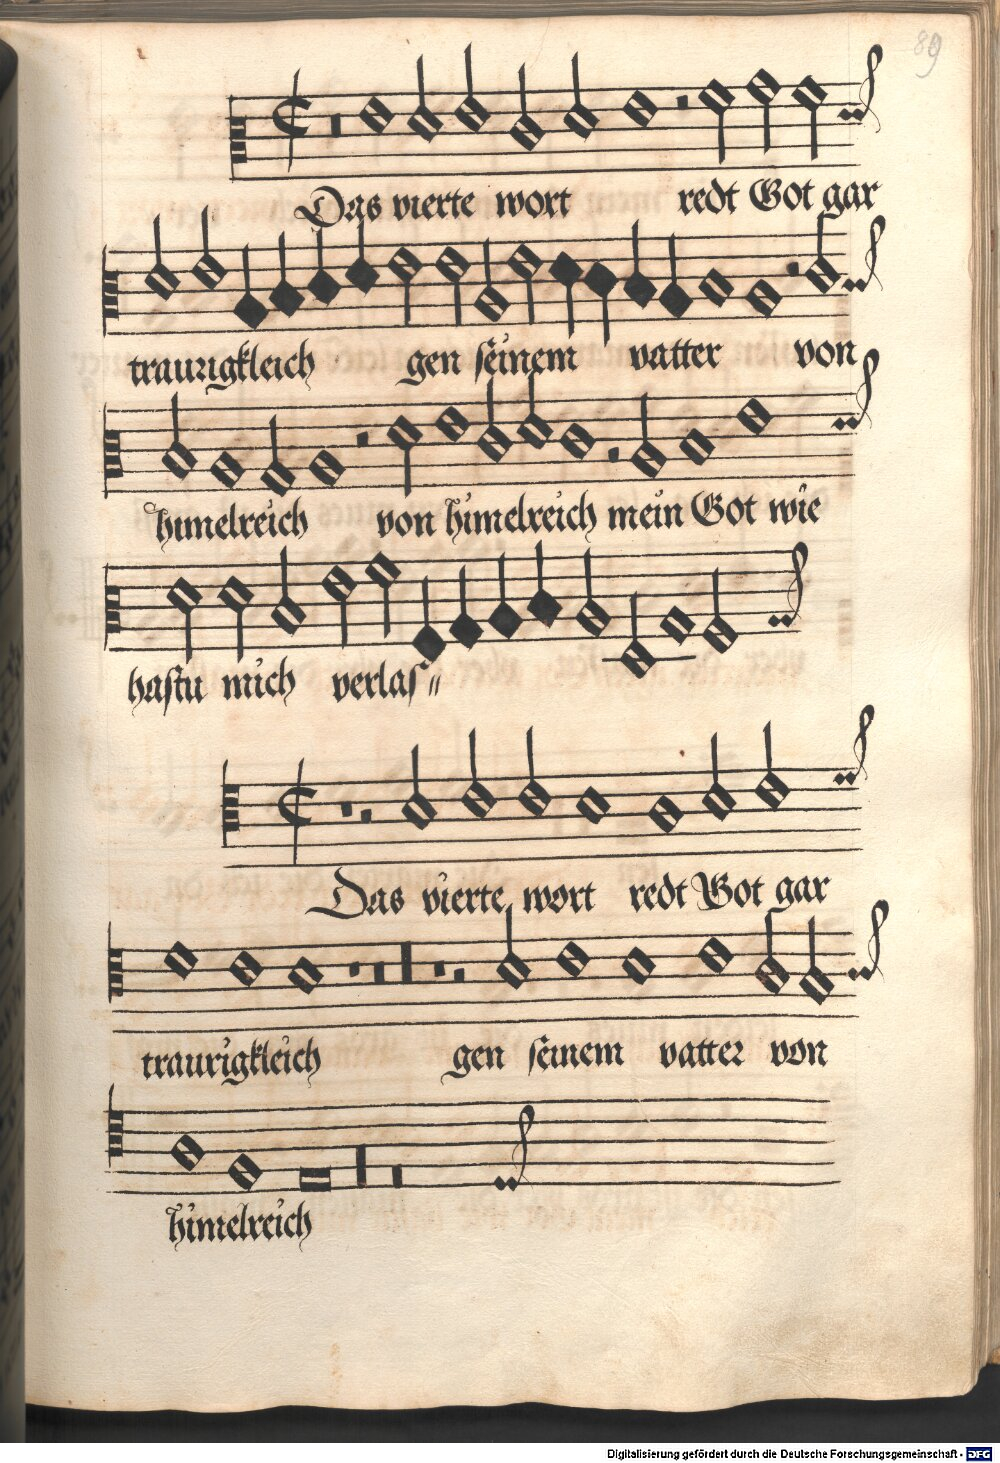 89
Das vierte wort redt Got gar
traurigkleich gen seinem vatter von
himelreich von himelreich mein Got wie
hastu mich verlas〃
Das vierte wort redt Got gar
traurigkleich gen seinem vatter von
himelreich
Digitalisierung gefördert durch die Deutsche Forschungsgemeinschaft - DFG